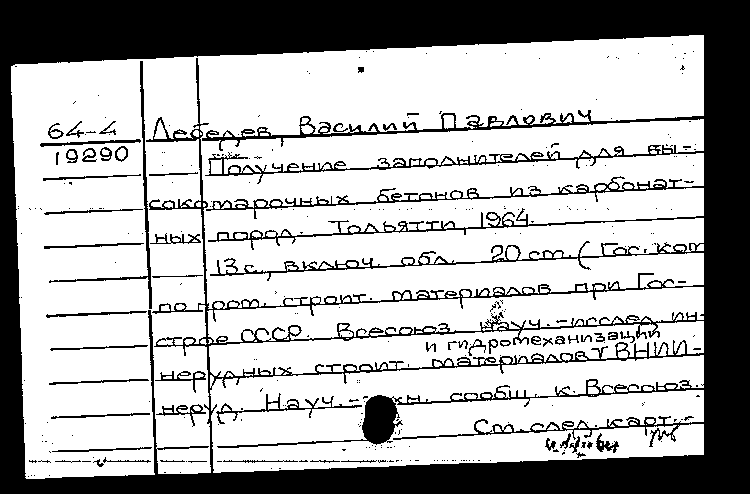 64-4 Лебедев, Василий Павлович
19290
Получение заполнителей для вы-
сокомарочных бетонов из карбонат-
ных пород. Тольятти, 1964.
13 с., включ. обл. 20 см. (Гос. ком
по пром. строит. материалов при Гос-
строе СССР. Всесоюз. науч.-исслед. ин-
и гидромеханизации
нерудных строит. материалов ВНИИ-
неруд. Науч.- сообщ. к Всесоюз.
См. след. карт.